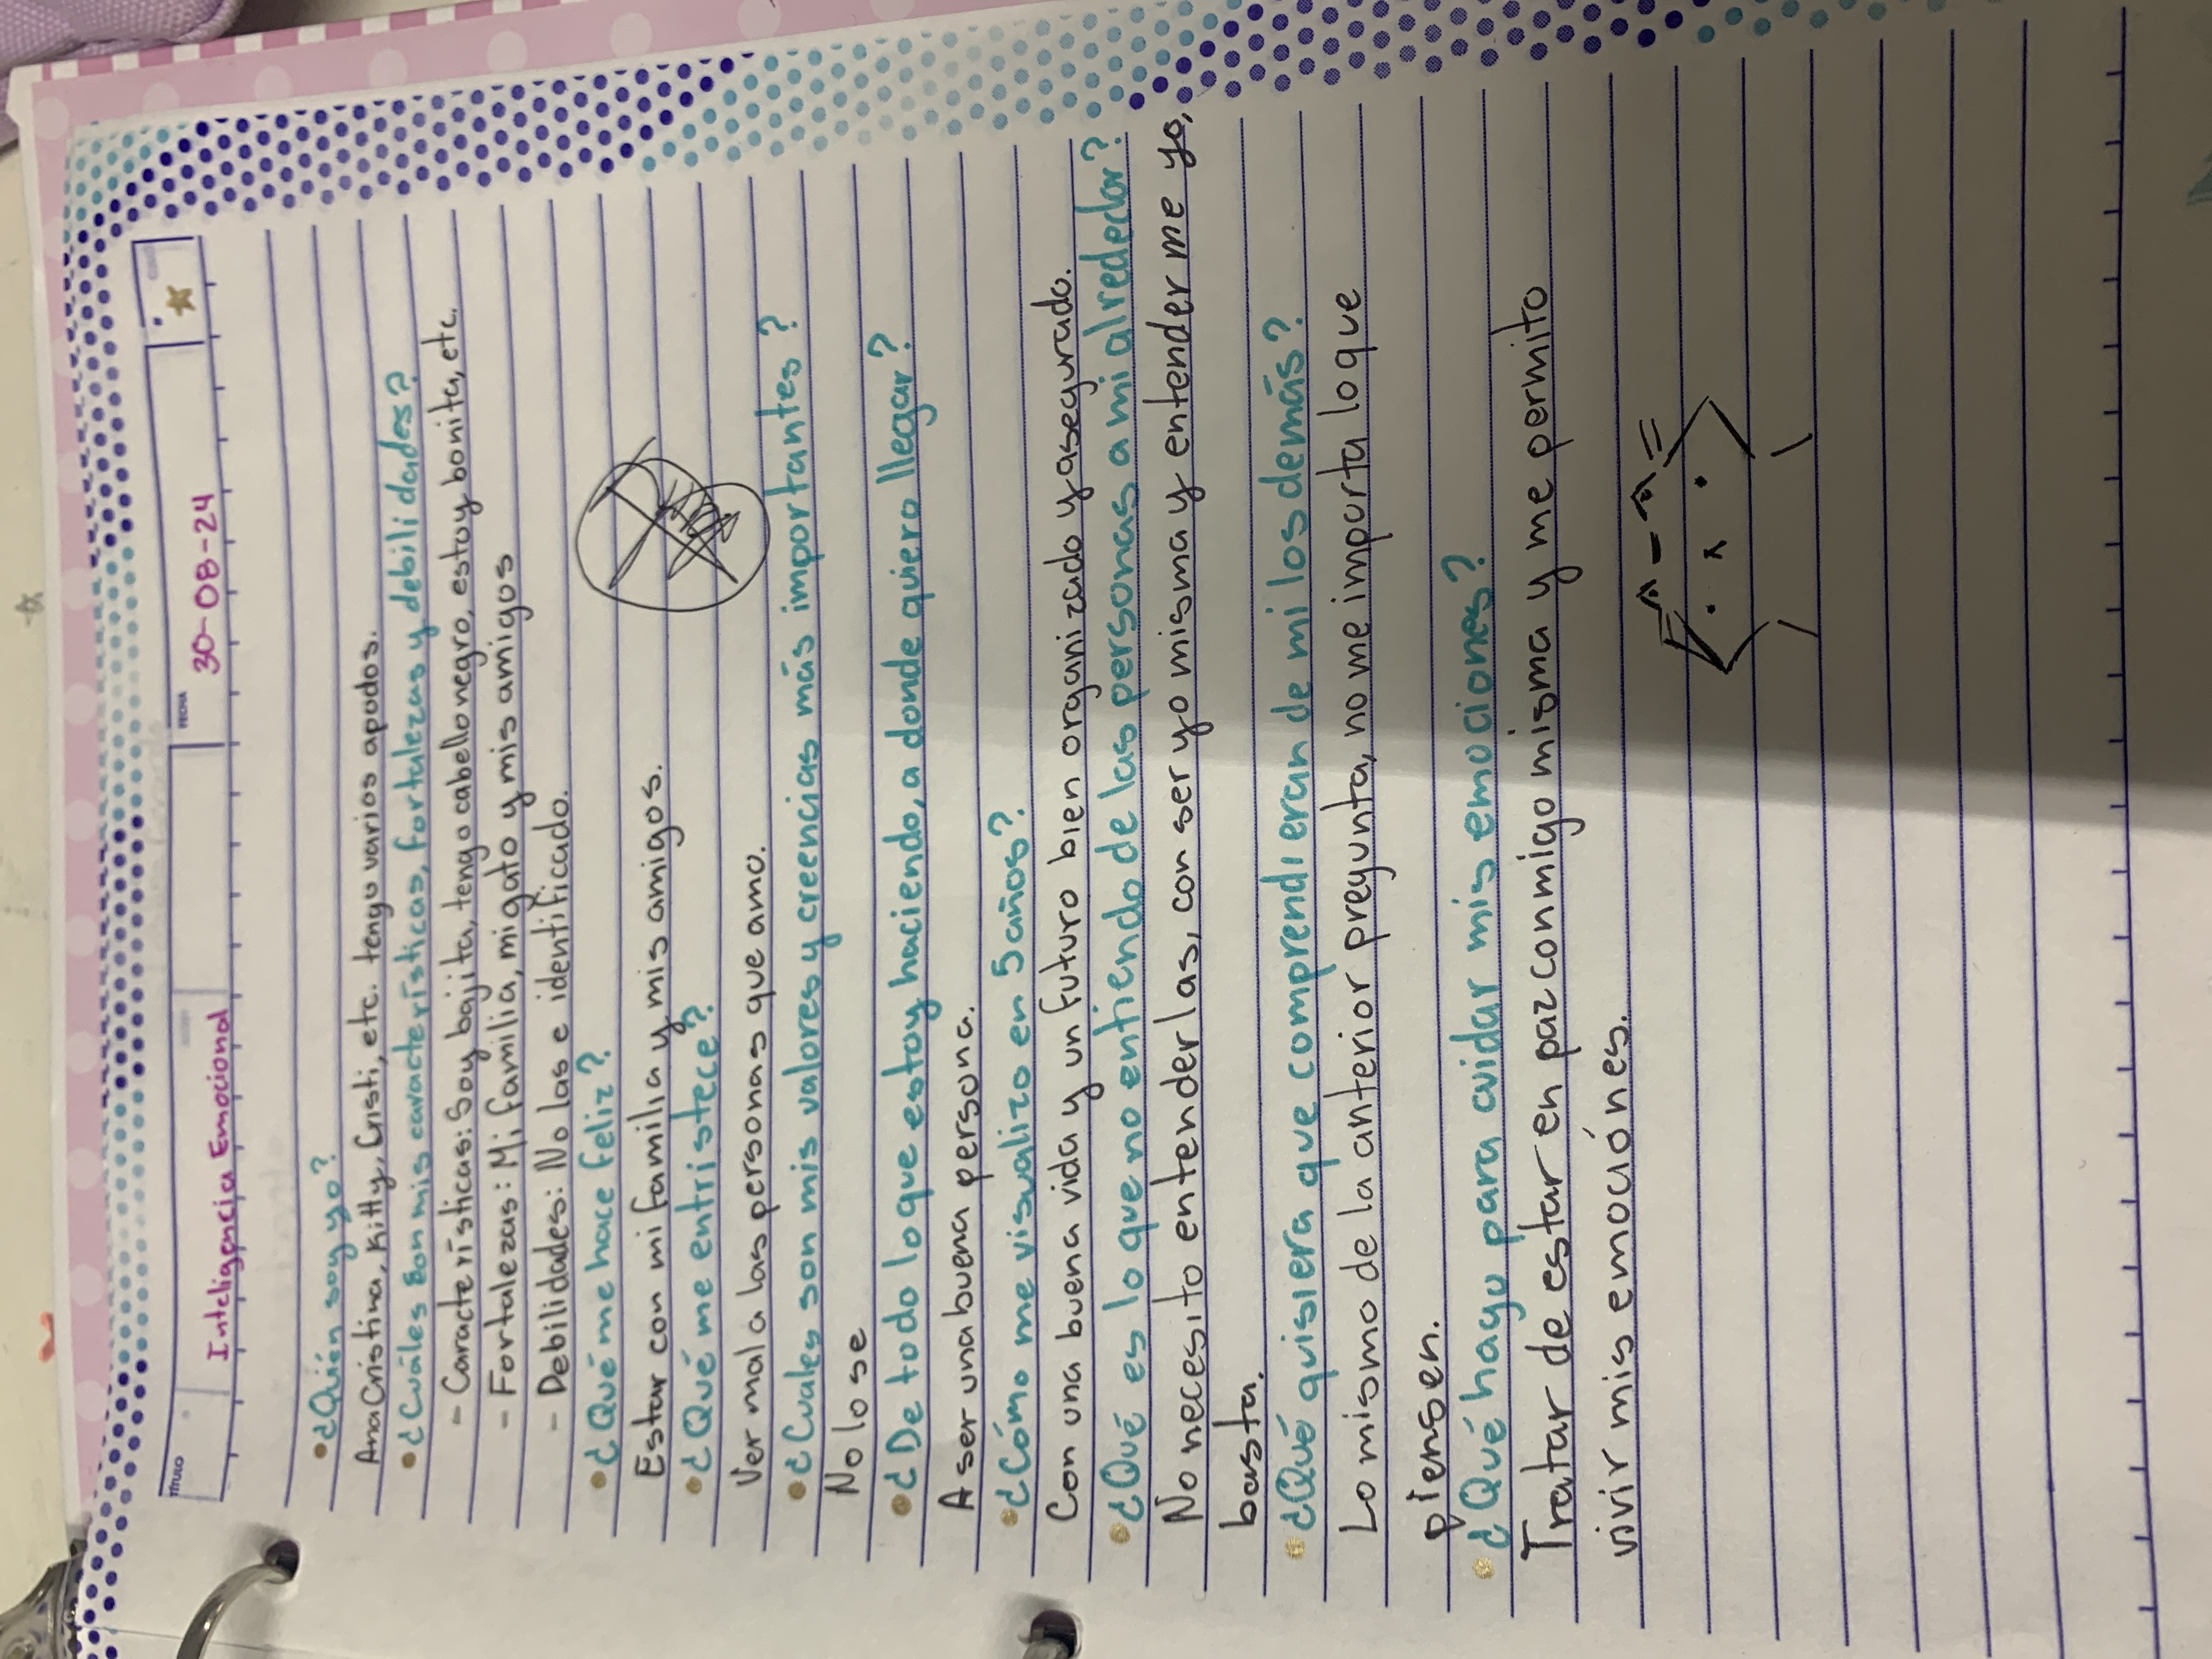 TÍTULO
Inteligencia Emocional
FECHA
30-08-24
•¿Quién soy yo?
Ana Cristina, Kitty, Cristi, etc. tengo varios apodos.
•¿Cuáles son mis características, fortalezas y debilidades?
- Características: Soy bajita, tengo cabello negro, estoy bonita, etc.
- Fortalezas: Mi familia, mi gato y mis amigos
- Debilidades: No las e identificado.
•¿Qué me hace feliz?
Estar con mi familia y mis amigos.
•¿Qué me entristece?
Ver mal a las personas que amo.
•¿Cuales son mis valores y creencias más importantes?
No lo se
•¿De todo lo que estoy haciendo, a donde quiero llegar?
A ser una buena persona.
•¿Cómo me visualizo en 5 años?
Con una buena vida y un futuro bien organizado y asegurado.
•¿Qué es lo que no entiendo de las personas a mi alrededor?
No necesito entenderlas, con ser yo misma y entenderme yo,
basta.
•¿Qué quisiera que comprendieran de mi los demás?
Lo mismo de la anterior pregunta, no me importa lo que
piensen.
•¿Qué hago para cuidar mis emociones?
Tratar de estar en paz conmigo misma y me permito
vivir mis emociónes.